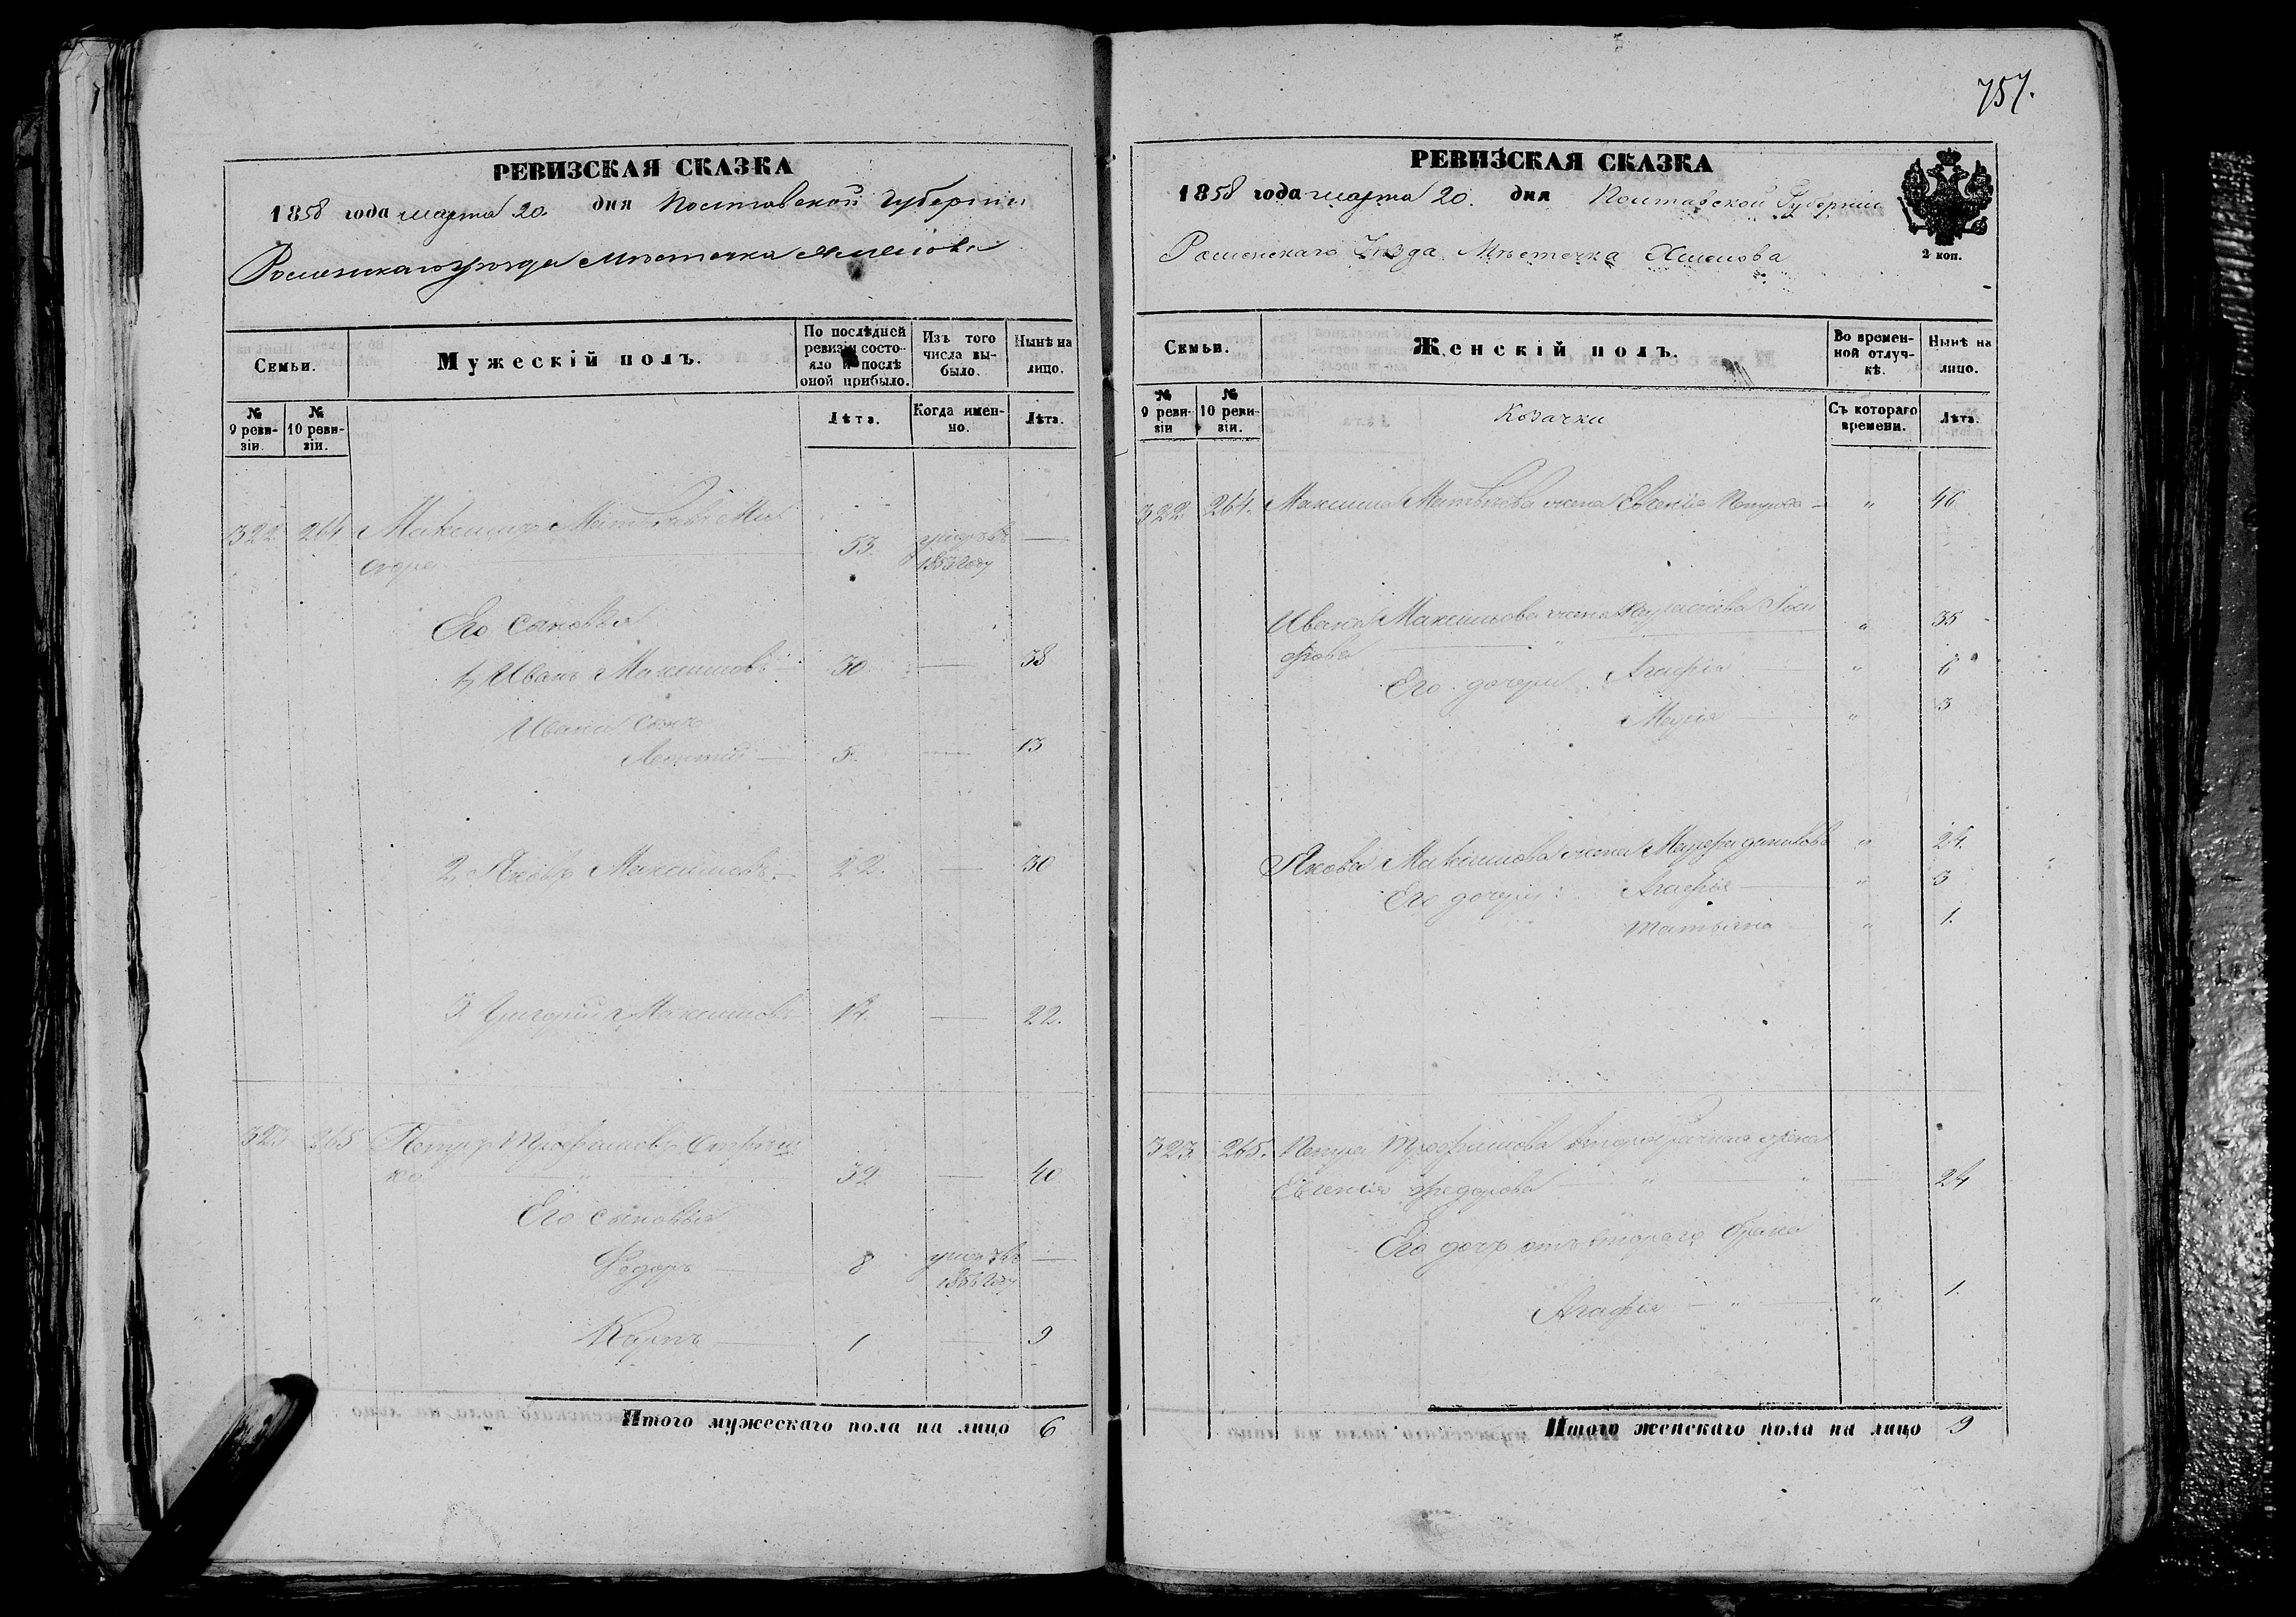 РЕВИЗСКАЯ СКАЗКА
1858 года марта 20. дня Полтавской Губернии
Роменскаго уезда Мѣстечка Хмелова
Семьи.
Мужескій полъ.
По послѣдней ревизіи состояло и послѣ оной прибыло.
Изъ того числа выбыло.
Нынѣ на лицо.
№ 9 ревизіи.
№ 10 ревизіи.
Лѣта.
Когда именно.
Лѣта.
322 264 Максимъ Матвѣевъ
53 1853 году —
Его сыновья
1, Иванъ Максимовъ 30 — 38
Ивана сынъ
Леонтій — 5 — 13
2, Яковъ Максимовъ — 22. — 30
3 Григорій Максимовъ 14. — 22.
323 265 Петръ Трофимовъ
ко 32 — 40
Его сыновья
Федоръ — 8 —
1856 году
Карпъ — 1 — 9
Итого мужескаго пола на лицо 6
757.
РЕВИЗСКАЯ СКАЗКА
1858 года марта 20. дня Полтавской Губерніи
Роменскаго Уезда Мѣстечка Хмелова
2 коп.
Семьи.
Женскій полъ.
Во временной отлучкѣ.
Нынѣ на лицо.
№ 9 ревизіи
№ 10 ревизіи.
Козачки
Съ котораго времени.
Лѣта.
322 264. Максима Матвѣева жена Евгенія Петрова — " 46
Ивана Максимова жена
фова — " 35
Его дочери Агафія — " 6
Марія — " 3
Якова Максимова жена " 24.
Его дочери: Агафія — " 3
Татьяна " 1.
323. 265. Петра Трофимова второбрачная жена
Евгенія Федорова — " " — 24
Его дочь отъ втораго брака
Агафія — " — " 1.
Итого женскаго пола на лицо 9